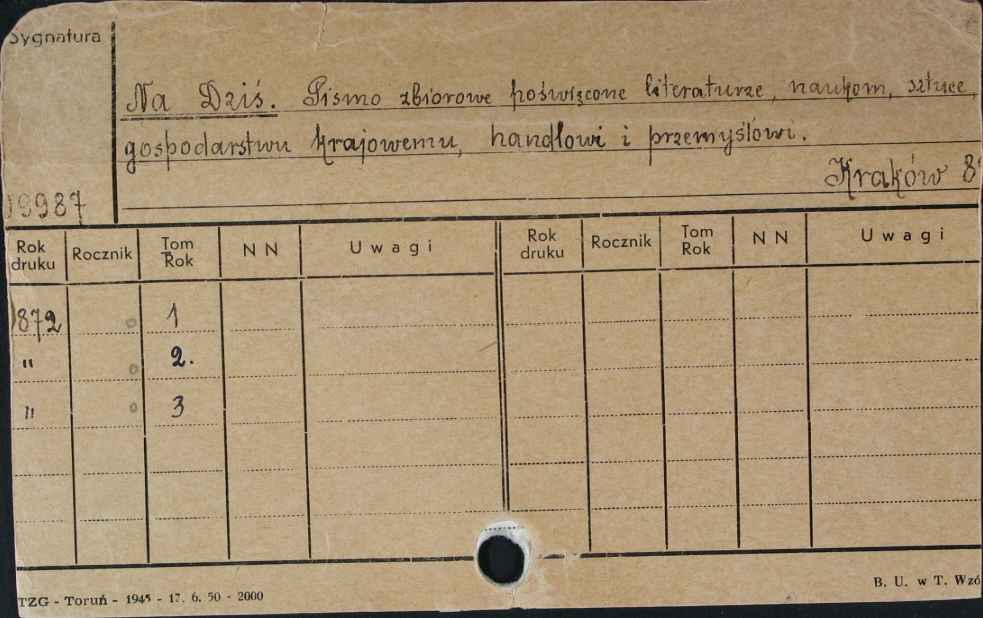 Sygnatura
Na Dziś. Pismo zbiorowe poświęcone literaturze, naukom, sztuce,
gospodarstwu krajowemu, handlowi i przemysłowi.
Kraków 8°
19987
Rok druku Rocznik Tom Rok N N Uwagi Rok druku Rocznik Tom Rok N N Uwagi
1872 o 1
" o 2.
" o 3
TZG - Toruń - 1945 - 17. 6. 50 - 2000
B. U. w T. Wzó